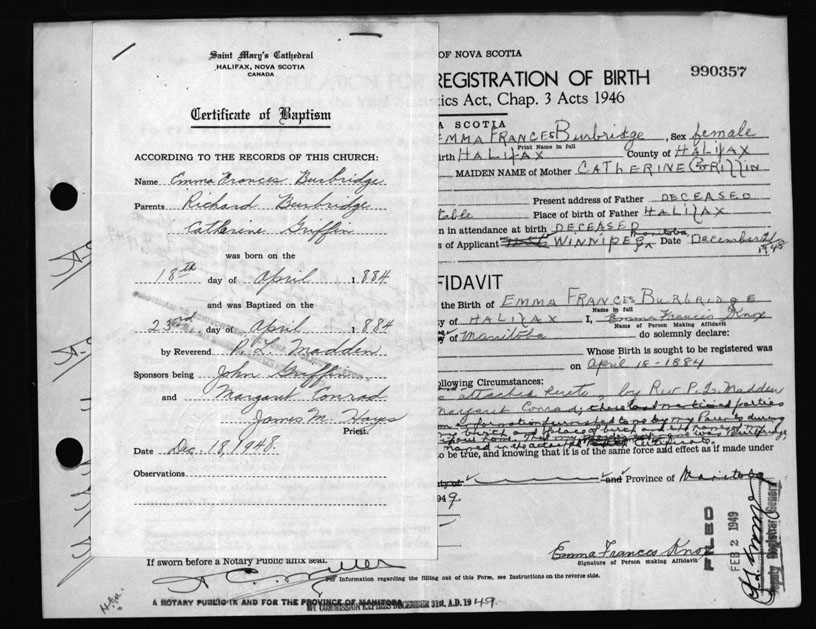 Saint Mary's Cathedral
HALIFAX, NOVA SCOTIA
CANADA
Certificate of Baptism
ACCORDING TO THE RECORDS OF THIS CHURCH:
Name Emma Frances Burbridge
Parents Richard Burbridge
Catherine Griffin
was born on the
18th day of April 1884
and was Baptized on the
23rd day of April 1884
by Reverend P. L. Madden
Sponsors being John Griffin
and Margaret Conrad
James M. Hayes
Priest.
Date Dec. 18, 1948.
Observations
OF NOVA SCOTIA
REGISTRATION OF BIRTH
990357
tics Act, Chap. 3 Acts 1946
A SCOTIA
EMMA FRANCES Burbridge, Sex female
Print Name in full
irth HALIFAX County of HALIFAX
MAIDEN NAME of Mother CATHERINE GRIFFIN
Present address of Father DECEASED
table Place of birth of Father HALIFAX
n in attendance at birth DECEASED
s of Applicant WINNIPEG Manitoba Date December 21 1948
FIDAVIT
the Birth of EMMA FRANCES BURBRIDGE
Name in full
ty of HALIFAX I, Emma Francis Knox
Name of Person Making Affidavit
of Manitoba do solemnly declare:
Whose Birth is sought to be registered was
on April 18-1884
ollowing Circumstances:
attached hereto, by Rev P. L. Madden
Margaret Conrad,
to be true, and knowing that it is of the same force and effect as if made under
and Province of Manitoba
949.
Emma Frances Knox
Signature of Person making Affidavit
FILED
FEB 2 1949
Deputy Registrar General
If sworn before a Notary Public affix seal.
For Information regarding the filling out of this Form, see Instructions on the reverse side.
A NOTARY PUBLIC IN AND FOR THE PROVINCE OF MANITOBA
MY COMMISSION EXPIRES DECEMBER 31st, A.D. 1949.